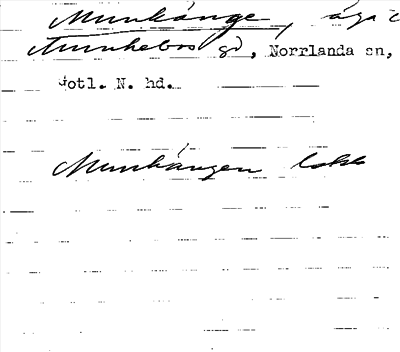 Munkänge, äga i
Munkebos gd, Norrlanda sn,
Gotl. N. hd.
Munkängen lokk